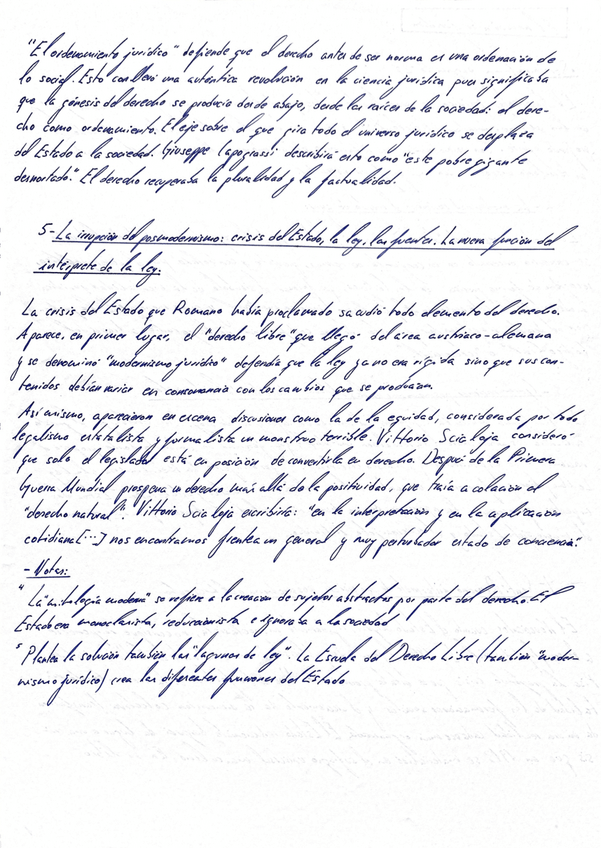 "El ordenamiento jurídico" defiende que el derecho antes de ser norma es una ordenación de
lo social. Esto conllevó una auténtica revolución en la ciencia jurídica pues significaba
que la génesis del derecho se producía desde abajo, desde las raíces de la sociedad: el dere-
cho como ordenamiento. El eje sobre el que gira todo el universo jurídico se desplaza
del Estado a la sociedad. Giuseppe Capograssi describirá esto como "este pobre gigante
desnortado." El derecho recuperaba la pluralidad y la factualidad.
5- La irrupción del posmodernismo: crisis del Estado, la ley, las fuentes. La nueva función del
intérprete de la ley.
La crisis del Estado que Romano había proclamado sacudió todo elemento del derecho.
Aparece, en primer lugar, el "derecho libre" que llegó del área austriaco-alemana
y se denominó "modernismo jurídico" defendía que la ley ya no era rígida sino que sus con-
tenidos debían variar en consonancia con los cambios que se producían.
Asimismo, aparecieron en escena discusiones como la de la equidad, considerada por todo
legalismo estatalista y formalista un monstruo terrible. Vittorio Scialoja consideró
que solo el legislador está en posición de convertirla en derecho. Después de la Primera
Guerra Mundial prospera un derecho más allá de la positividad, que traía a colación el
"derecho natural"⁵. Vittorio Scialoja escribiría: "en la interpretación y en la aplicación
cotidiana [...] nos encontramos frente a un general y muy perturbador estado de conciencia".
- Notas:
⁴ La "mitología moderna" se refiere a la creación de sujetos abstractos por parte del derecho. El
Estado era monoclasista, reduccionista e ignoraba a la sociedad
⁵ Plantea la solución también las "lagunas de ley". La Escuela del Derecho Libre (también "moder-
nismo jurídico) crea las diferentes funciones del Estado